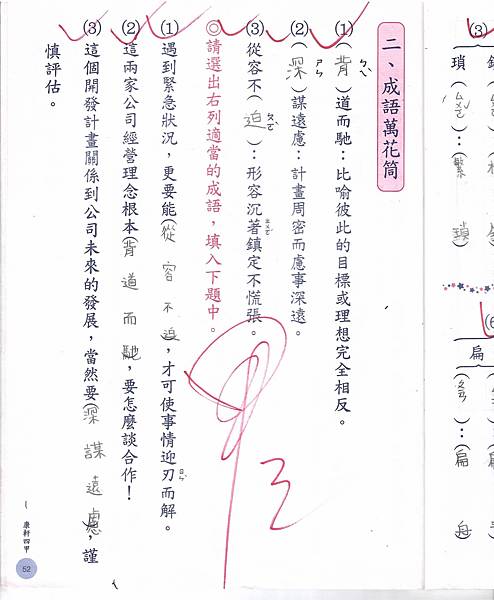 (3)
瑣(ㄙㄨㄛˇ):(繁 瑣)
(6
扁
:(扁 舟)
二、成語萬花筒
(1)(背ㄅㄟˋ)道而馳:比喻彼此的目標或理想完全相反。
(2)(深ㄕㄣ)謀遠慮:計畫周密而慮事深遠。
(3)從容不(迫ㄆㄛˋ):形容沉著鎮定不慌張。
◎請選出右列適當的成語,填入下題中。
(1)遇到緊急狀況,更要能(從容不迫),才可使事情迎刃ㄖㄣˋ而解。
(2)這兩家公司經營理念根本(背道而馳),要怎麼談合作!
(3)這個開發計畫關係到公司未來的發展,當然要(深謀遠慮),謹
慎評估。
康軒四甲
52